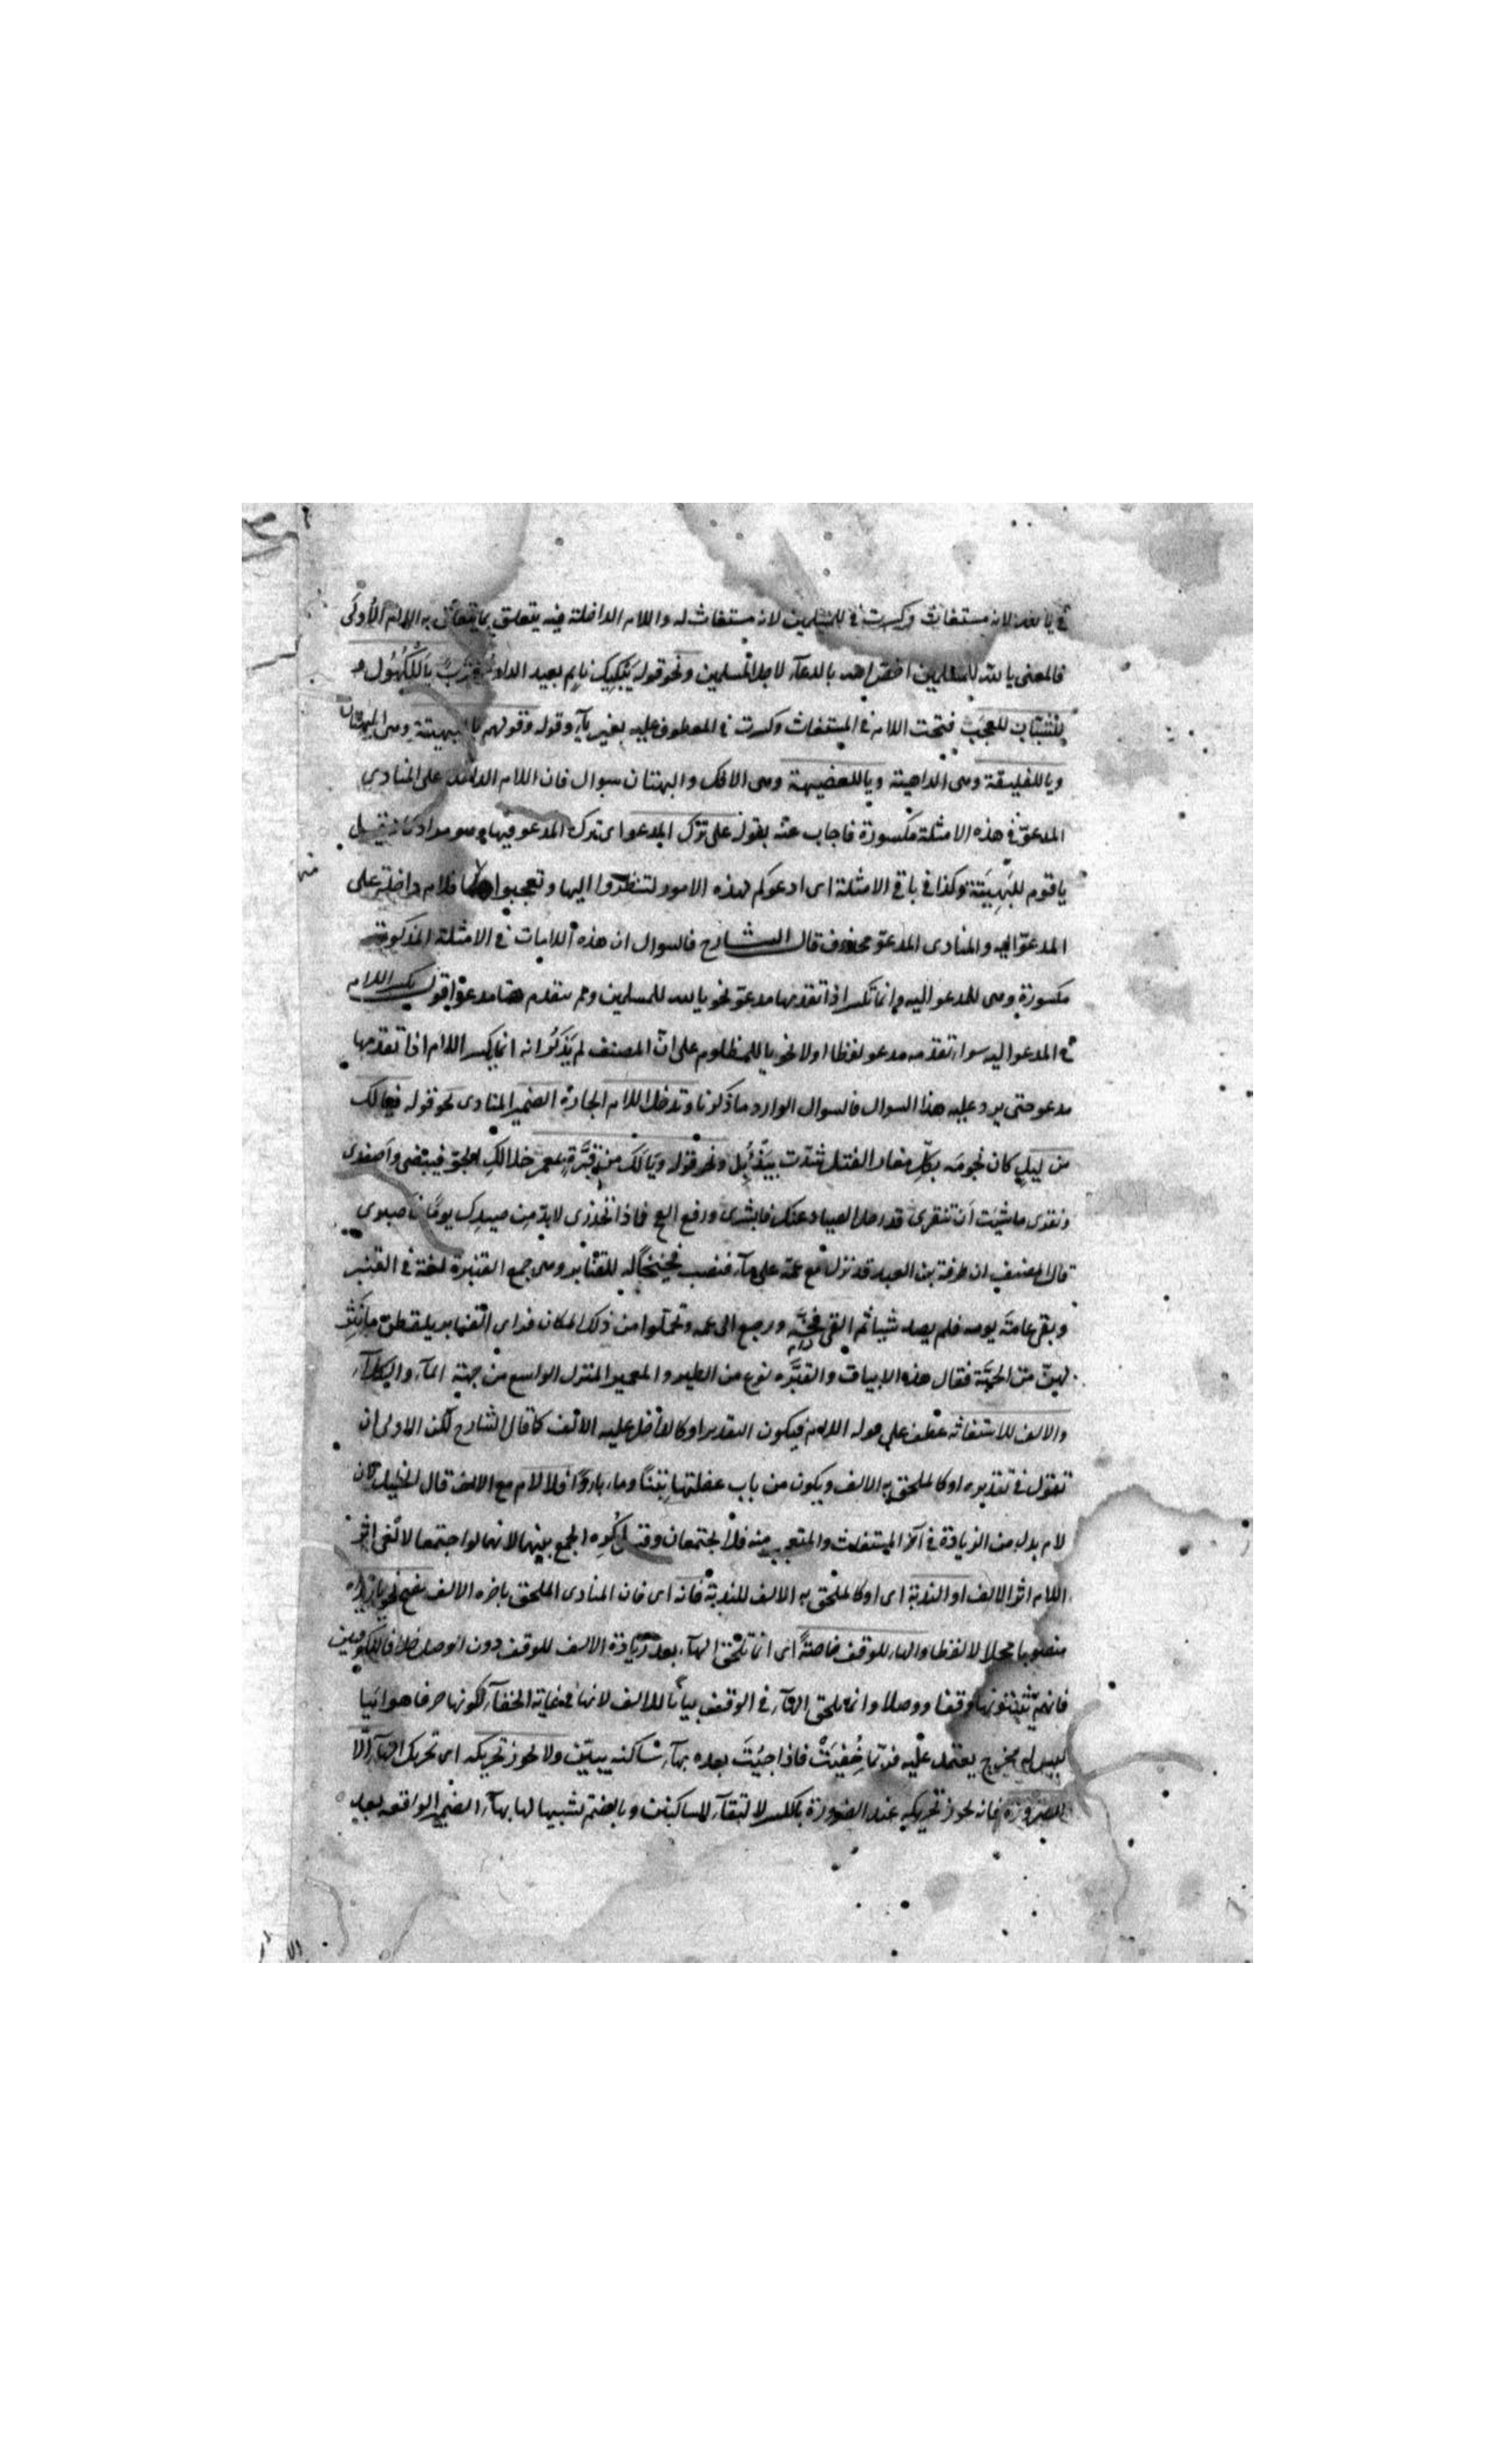 في يا لله لانه مستغاث وكسرت في للمسلمين لانه مستغاث له واللام الداخلة فيه يتعلق بما يتعلق به اللام الأولى
فالمعنى يا لله للمسلمين اخص الله بالدعآء لاجل المسلمين ونحو قوله يَبْكِيكَ ناءٍ بعيد الدار مغترِبٌ يا لَلْكُهُول و
لِلشُّبّان للعجَب فتحت اللام في المستغاث وكسرت في المعطوف عليه بغير يآء وقوله وقولهم يا للبهيتة وهى البهتان
ويا للفليقة وهى الداهية ويا للعضيهة وهى الافك والبهتان سوال فان اللام الداخل على المنادى
المدعوّ في هذه الامثلة مكسورة فاجاب عنه بقوله على ترك المدعو اى ترك المدعو فيها وهو مراد كانه قيل
يا قوم للبَهِيتة وكذا في باقي الامثلة اى ادعوكم لهذه الامور لتنظروا اليها وتعجبوا فاللام داخلة على
المدعوّ اليه والمنادى المدعوّ محذوف قال الشارح فالسوال ان هذه اللامات في الامثلة المذكورة
مكسورة وهى للمدعو اليه وانما تكسر اذا تقدمها مدعوّ نحو يا لله للمسلمين ولم يتقدم هنا مدعوّ اقول يكسر اللام
في المدعو اليه سواء تقدمه مدعو لفظا اولا نحو يا للمظلوم على انّ المصنف لم يَذكُر انه انما يكسر اللام اذا تقدمها
مدعو حتى يرد عليه هذا السوال فالسوال الوارد ما ذكرنا وتدخل اللام الجارة الضمير المنادى نحو قوله فيالك
من ليلٍ كان نجومَه بكلّ مغار الفتل شدّت بيَذْبُل ونحو قوله ويا لَك من قبَّرةٍ بمعمر خلا لكِ الجوّ فبيضى واَصفرى
ونقرى ما شئت اَن تنقرى قد رحل الصياد عنك فابشرى ورفع الفخ فماذا تحذرى لابدّ مِن صيدِك يومًا فاصبرى
قال المصنف ان طرفة بن العبد قد نزل مع عمّه على مآء فنصب فخّاً له للقنابر وهى جمع القنبرة لغة في القبر
وبقى عامّة يومه فلم يصد شيئا ثم القى فخّه ورجع الى عمه وتحملوا من ذلك المكان فراى القنابر يلقطن ما نثر
لهنّ من الحَبّة فقال هذه الابيات والقبَّره نوع من الطير والمعمر المنزل الواسع من جهة المآء والكلآء
والالف للاستغاثة عطف على قوله اللام فيكون التقدير او كالداخل عليه الالف كما قال الشارح لكن الاولى ان
تقول في تقديره او كالملحق به الالف ويكون من باب علفتها تبنًا وماء باردًا فلا لام مع الالف قال الخليل كان
لام بدل من الزيادة في آخر المستغاث والمتعجب منه فلا يجتمعان وقيل كُرِه الجمع بينهما لانهما لو اجتمعا لانفى اثر
اللام اثر الالف او الندبة اى او كالملحق به الالف للندبة فانه اى فان المنادى الملحق باخره الالف يفتح نحو يا زيداه
منصوبا محلا لا لفظا والهاء للوقف خاصةً اى انما تلحق الهآء بعد زيادة الالف للوقف دون الوصل خلافا للكوفيين
فانهم يثبتونها وقفا ووصلا وانما يلحق الهآء في الوقف بيانًا للالف لانها في غاية الخفآء لكونها حرفا هوائيا
ليس له مخرج يعتمد عليه فربّما خُفِيَتْ فاذا جئتَ بعده بهآء ساكنه يبيّن ولا يجوز تحريكه اى تحريك الهآء الّا
للضرورة فانه يجوز تحريكه عند الضرورة بالكسر لالتقآء الساكنين وبالضم تشبيها لها بهآء الضمير الواقعه بعد